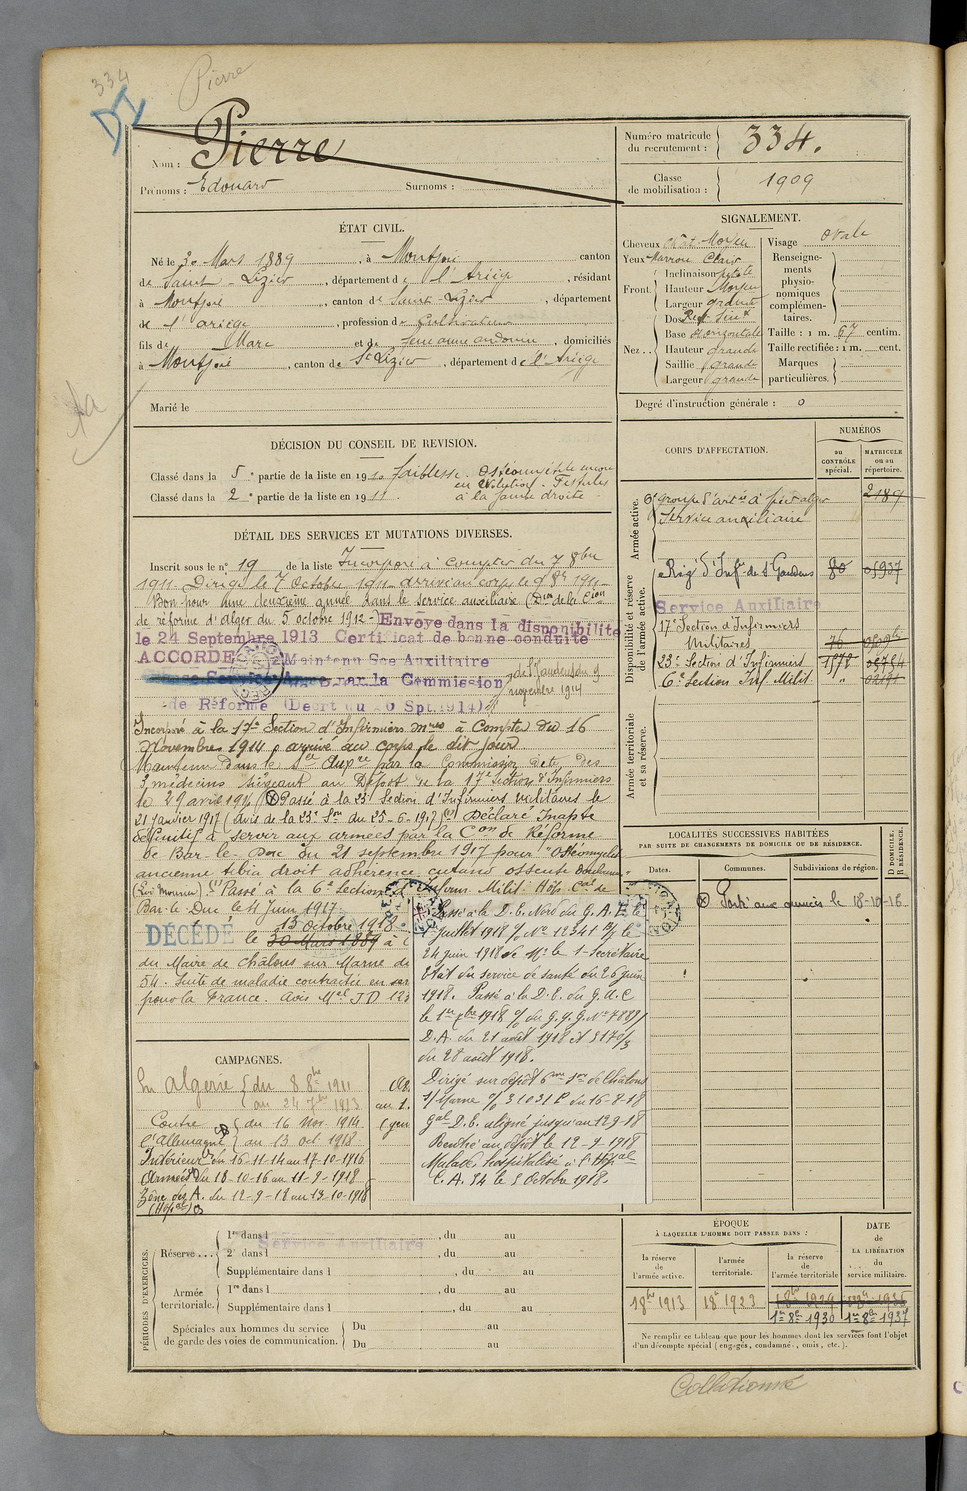 334
Pierre
DI
Nom : Pierre
Prénoms : Edouard Surnoms :
Numéro matricule du recrutement : 334.
Classe de mobilisation : 1909
ÉTAT CIVIL.
Né le 30 Mars 1889, à Montjoie canton
de Saint-Lizier, département de l'Ariège, résidant
à Montjoie, canton de Saint-Lizier, département
de l'ariège, profession de Cultivateur
fils de Marc et de domiciliés
à Montjoie, canton de St Lizier, département de l'Ariège
Marié le
SIGNALEMENT.
Cheveux Chât. Moyen
Yeux Marron Clair
Front. Inclinaison
Hauteur Moyen
Largeur grande
Nez.. Dos Rect. Sinx
Base Horizontale
Hauteur grande
Saillie grande
Largeur grande
Visage ovale
Renseignements physionomiques complémentaires.
Taille : 1 m. 67 centim.
Taille rectifiée : 1 m. cent.
Marques particulières.
Degré d'instruction générale : 0
DÉCISION DU CONSEIL DE REVISION.
Classé dans la 5e partie de la liste en 1910 faiblesse. Ostéomyélite
en évolution - Fistules
Classé dans la 2e partie de la liste en 1911. à la jambe droite
DÉTAIL DES SERVICES ET MUTATIONS DIVERSES.
Inscrit sous le n° 19 de la liste Incorporé à compter du 7 8bre
1911. Dirigé le 7 Octobre 1911 arrivé au corps le 8 8bre 1911
Bon pour une deuxième année dans le service auxiliaire (Don de la Cion
de réforme d'alger du 5 octobre 1912 - Envoyé dans la disponibilité
le 24 Septembre 1913 Certificat de bonne conduite
ACCORDÉ Maintenu Sce Auxiliaire
par la Commission de St Gaudens du 9
de Réforme (Décrt du 26 Spt. 1914) novembre 1914
Incorporé à la 17e Section d'Infirmiers mres à Compter du 16
Novembre 1914, arrivé au corps le dit jour
Maintenu dans le Sce Auxre par la Commission des
3 médecins siégeant au Dépôt de la 17e section d'Infirmiers
le 29 avril 191 Passé à la 23e Section d'Infirmiers militaires le
21 janvier 1917 (avis de la 23e Son du 25-6-1917) Déclaré Inapte
définitif à servir aux armées par la Con de Réforme
de Bar-le-Duc du 21 septembre 1917 pour "Ostéomyélite
ancienne tibia droit adhérence cutanéo osseuse
(Loi Mourier). Passé à la 6e Section d'Infirm. Milit. Hôp. Cal de
Bar-le-Duc le 4 Juin 1917
DÉCÉDÉ le 13 Octobre 1918 30 Mars 1889 à
du Maire de Châlons sur Marne
54. Suite de maladie contractée en
pour la France. Avis Mel JD
Passé à la D. E. Nord du G. A. E. le
1er juillet 1918 N° 12341 le
24 juin 1918 de Mr le 1er Secrétaire
État du service de santé du 26 juin
1918. Passé à la D. E. du G. A. C
le 1er 7bre 1918 du G. Q. G. N° 7889/
D. A. du 21 août 1918 et 5170/3
du 28 août 1918.
Dirigé sur dépôt 6me Son de Châlons
s/ Marne 31031 P du 16-8-18
Gal D. E. aligné jusqu'au 12 9-18
Rentré au dépôt le 12-9-1918
Malade hospitalisé à l'Hôpital
C. A. 54 le 5 Octobre 1918.
CORPS D'AFFECTATION.
NUMÉROS
au CONTRÔLE spécial.
MATRICULE ou au répertoire.
Armée active.
groupe d'artie à pied alger 2189
Service auxiliaire
Disponibilité et réserve de l'armée active.
Rég. d'Infie de St Gaudens 80 05937
Service Auxiliaire
17e Section d'Infirmiers
Militaires 76
23e Section d'Infirmiers 1578
6e Section Inf. Milit. "
Armée territoriale et sa réserve.
LOCALITÉS SUCCESSIVES HABITÉES
PAR SUITE DE CHANGEMENTS DE DOMICILE OU DE RÉSIDENCE.
Dates. Communes. Subdivisions de région. D DOMICILE. R RÉSIDENCE.
Parti aux armées le 18-10-16.
CAMPAGNES.
En Algérie du 8 8bre 1911
au 24 7bre 1913
Contre du 16 Nov. 1914
l'Allemagne au 13 oct. 1918
Intérieur du 16-11-14 au 17-10-1916
Armées du 18-10-16 au 11-9-1918
Zône des A. du 12-9-18 au 13-10-1918
(Hôpal)
PÉRIODES D'EXERCICES.
Réserve ... 1re dans l , du au
Service Auxiliaire
2e dans l , du au
Supplémentaire dans l , du au
Armée territoriale. 1re dans l , du au
Supplémentaire dans l , du au
Spéciales aux hommes du service de garde des voies de communication. Du au
Du au
ÉPOQUE
À LAQUELLE L'HOMME DOIT PASSER DANS :
la réserve de l'armée active.
l'armée territoriale.
la réserve de l'armée territoriale
DATE de LA LIBÉRATION du service militaire.
1 8bre 1913
1 8bre 1923
1 8bre 1929
1er 8bre 1930
1er 8bre 1937
Ne remplir ce tableau que pour les hommes dont les services font l'objet
d'un décompte spécial (engagés, condamnés, omis, etc.).
Collationné